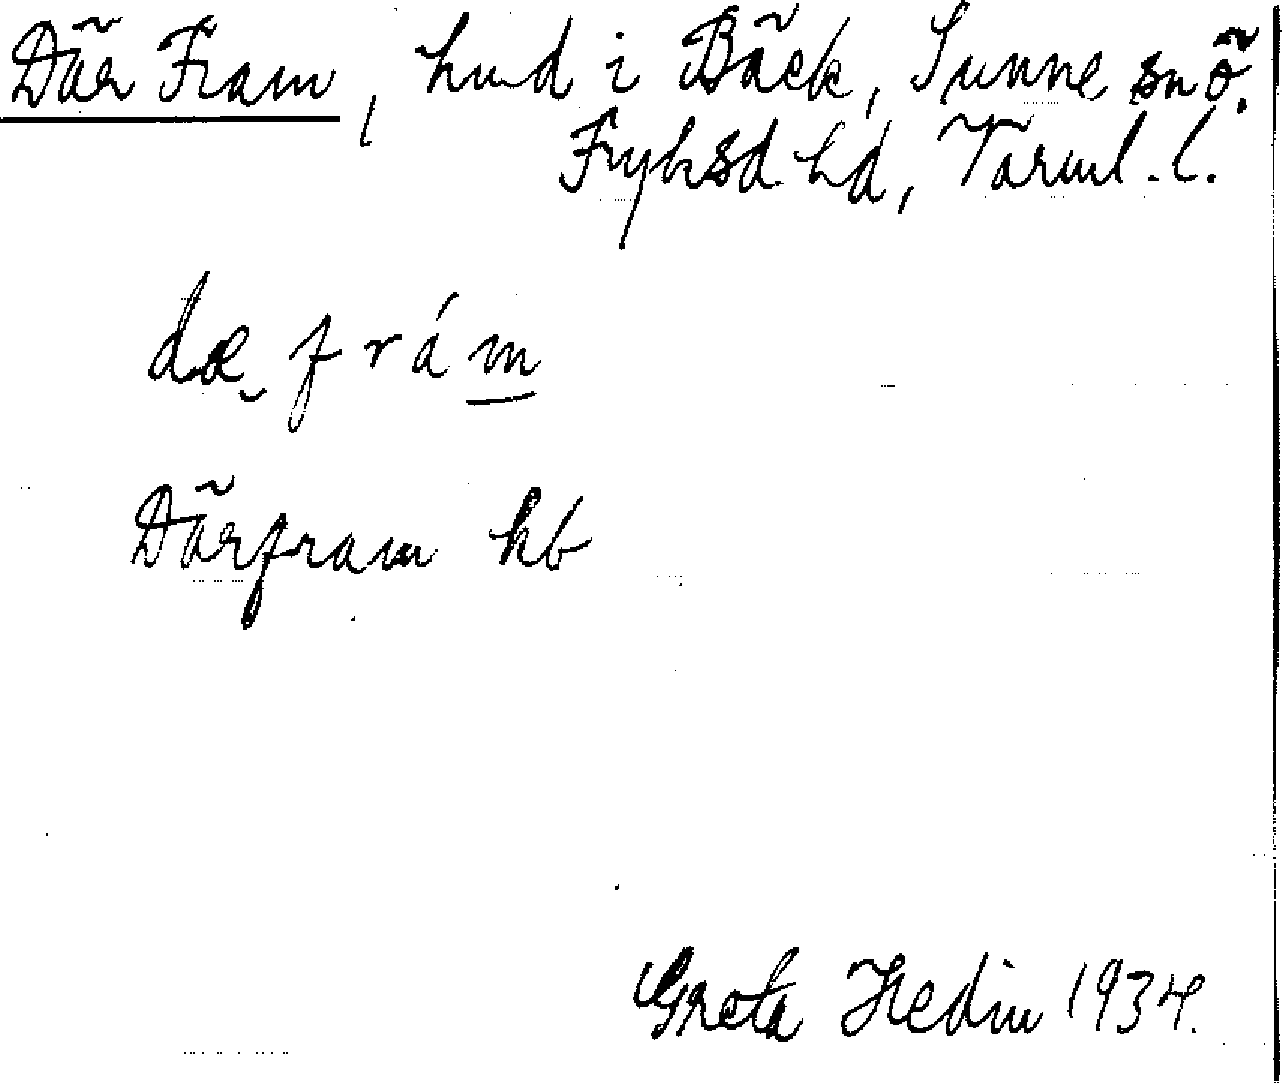 Där Fram, hmd i Bäck, Sunne sn ö.
Fryksd. hd, Värml. l.
dæ̬ f r á m
Därfram kb
Greta Hedin 1934.